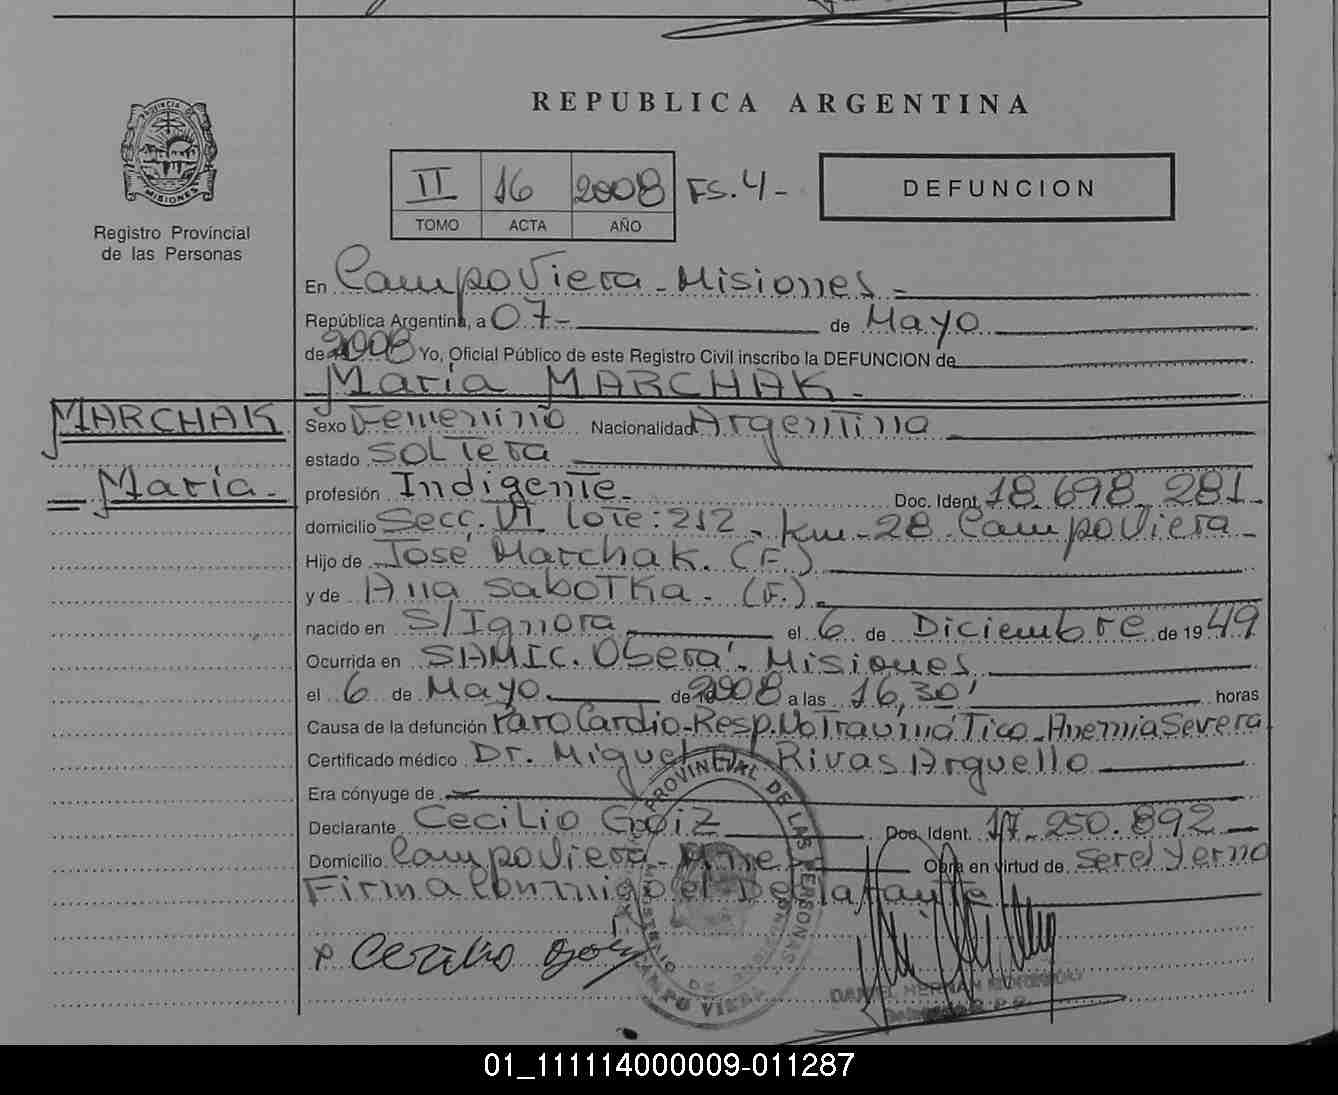 REPUBLICA ARGENTINA
PROVINCIA DE
MISIONES
Registro Provincial
de las Personas
II 16 2008 FS.4-
TOMO ACTA AÑO
DEFUNCION
En CampoViera - Misiones -
República Argentina, a 07- de Mayo
de 2008 Yo, Oficial Público de este Registro Civil inscribo la DEFUNCION de
María MARCHAK.
MARCHAK
María.
Sexo Femenino Nacionalidad Argentina
estado Soltera
profesión Indigente. Doc. Ident. 18.698.281-
domicilio Secc. VI Lote: 212 - Km-28 CampoViera-
Hijo de José Marchak. (F.)
y de Ana Sabotka. (F.)
nacido en S/Ignora el 6 de Diciembre de 1949
Ocurrida en SAMIC. Oberá. Misiones
el 6 de Mayo. de 2008 a las 16,30' horas
Causa de la defunción Paro Cardio-Resp. No Traumático - Anemia Severa
Certificado médico Dr. Miguel Rivas Arguello
Era cónyuge de
Declarante Cecilio Goiz Doc. Ident. 17.250.892
Domicilio CampoViera- Mnes Obra en virtud de ser el yerno
Firma Conmigo el Declarante
x Cecilio
PROVINCIAL DE LAS PERSONAS
CAMPO VIERA
01_111114000009-011287